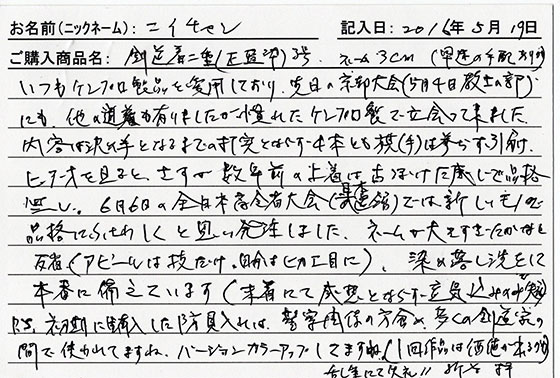 お名前(ニックネーム): ニイチャン 記入日: 2016年 5月 19日
ご購入商品名: 剣道着二重(正藍染)3号. ネーム3cm (早速の手配ありがと)
いつもケンプロ製品を愛用しており、先日の京都大会(5月4日教士の部)
にも、他の道着も有りましたが慣れたケンプロ製で立会って来ました。
内容は決め手となるまでの打突とならず4本とも旗(手)は挙らず引分け
ビデオを見ると、さすが数年前の上着は色ぼけた感じで品格
無し。6月6日の全日本高令者大会(日本武道館)では新しいもので
品格にふさわしくと思い発注しました。ネームが大きすぎたかなと
反省(アピールは技だけ、自分はヒカエ目に)、染め落し洗をして
本番に備えています(未着にて感想とならず
P.S. 初期に購入した防具入れは、警察関係の方含め、多くの剣道家の
間で使われてますね。バージョンカラーアップしてますね。(1回作品は価値が
乱筆にて失礼!!